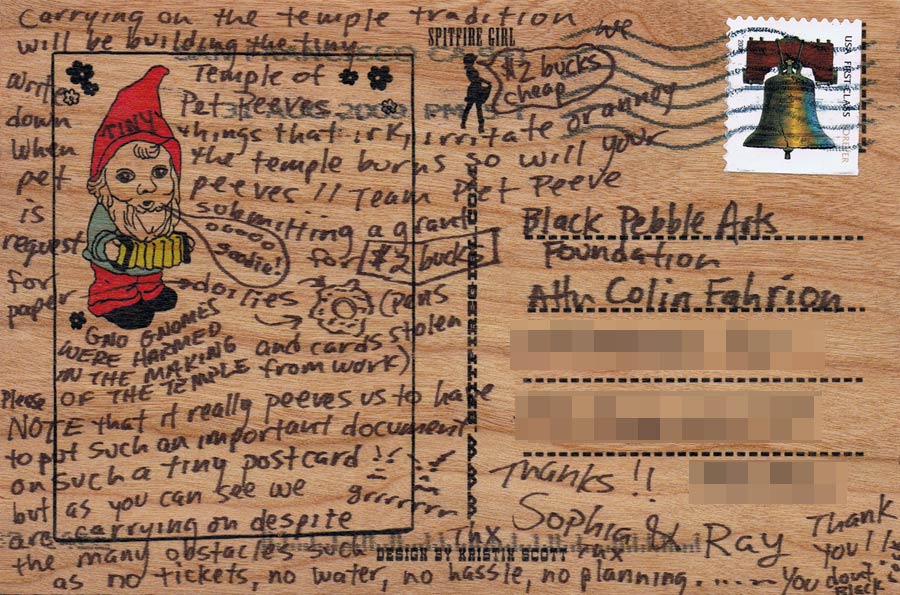 Carrying on the temple tradition we
will be building the tiny
Temple of
Pet Peeves.
Write
down
when
pet
is
request
for
paper
things that irk, irritate or annoy
the temple burns so will your
peeves !! Team Pet Peeve
submitting a grant
for $2 bucks
doilies (pens
and cards stolen
from work)
TINY
ooooo
goodie!
GNO GNOMES
WERE HARMED
IN THE MAKING
OF THE TEMPLE
Please
NOTE that it really peeves us to have
to put such an important document
on such a tiny postcard !!
grrrrrrr
but as you can see we
are carrying on despite
the many obstacles such
as no tickets, no water, no hassle, no planning.....
SPITFIRE GIRL
$2 bucks
cheap
USA FIRST-CLASS
FOREVER
Black Pebble Arts
Foundation
Attn Colin Fahrion
Thanks !!
Sophia & Ray
Thx
Thx
Thank
You !!
You dont
Black
DESIGN BY KRISTIN SCOTT